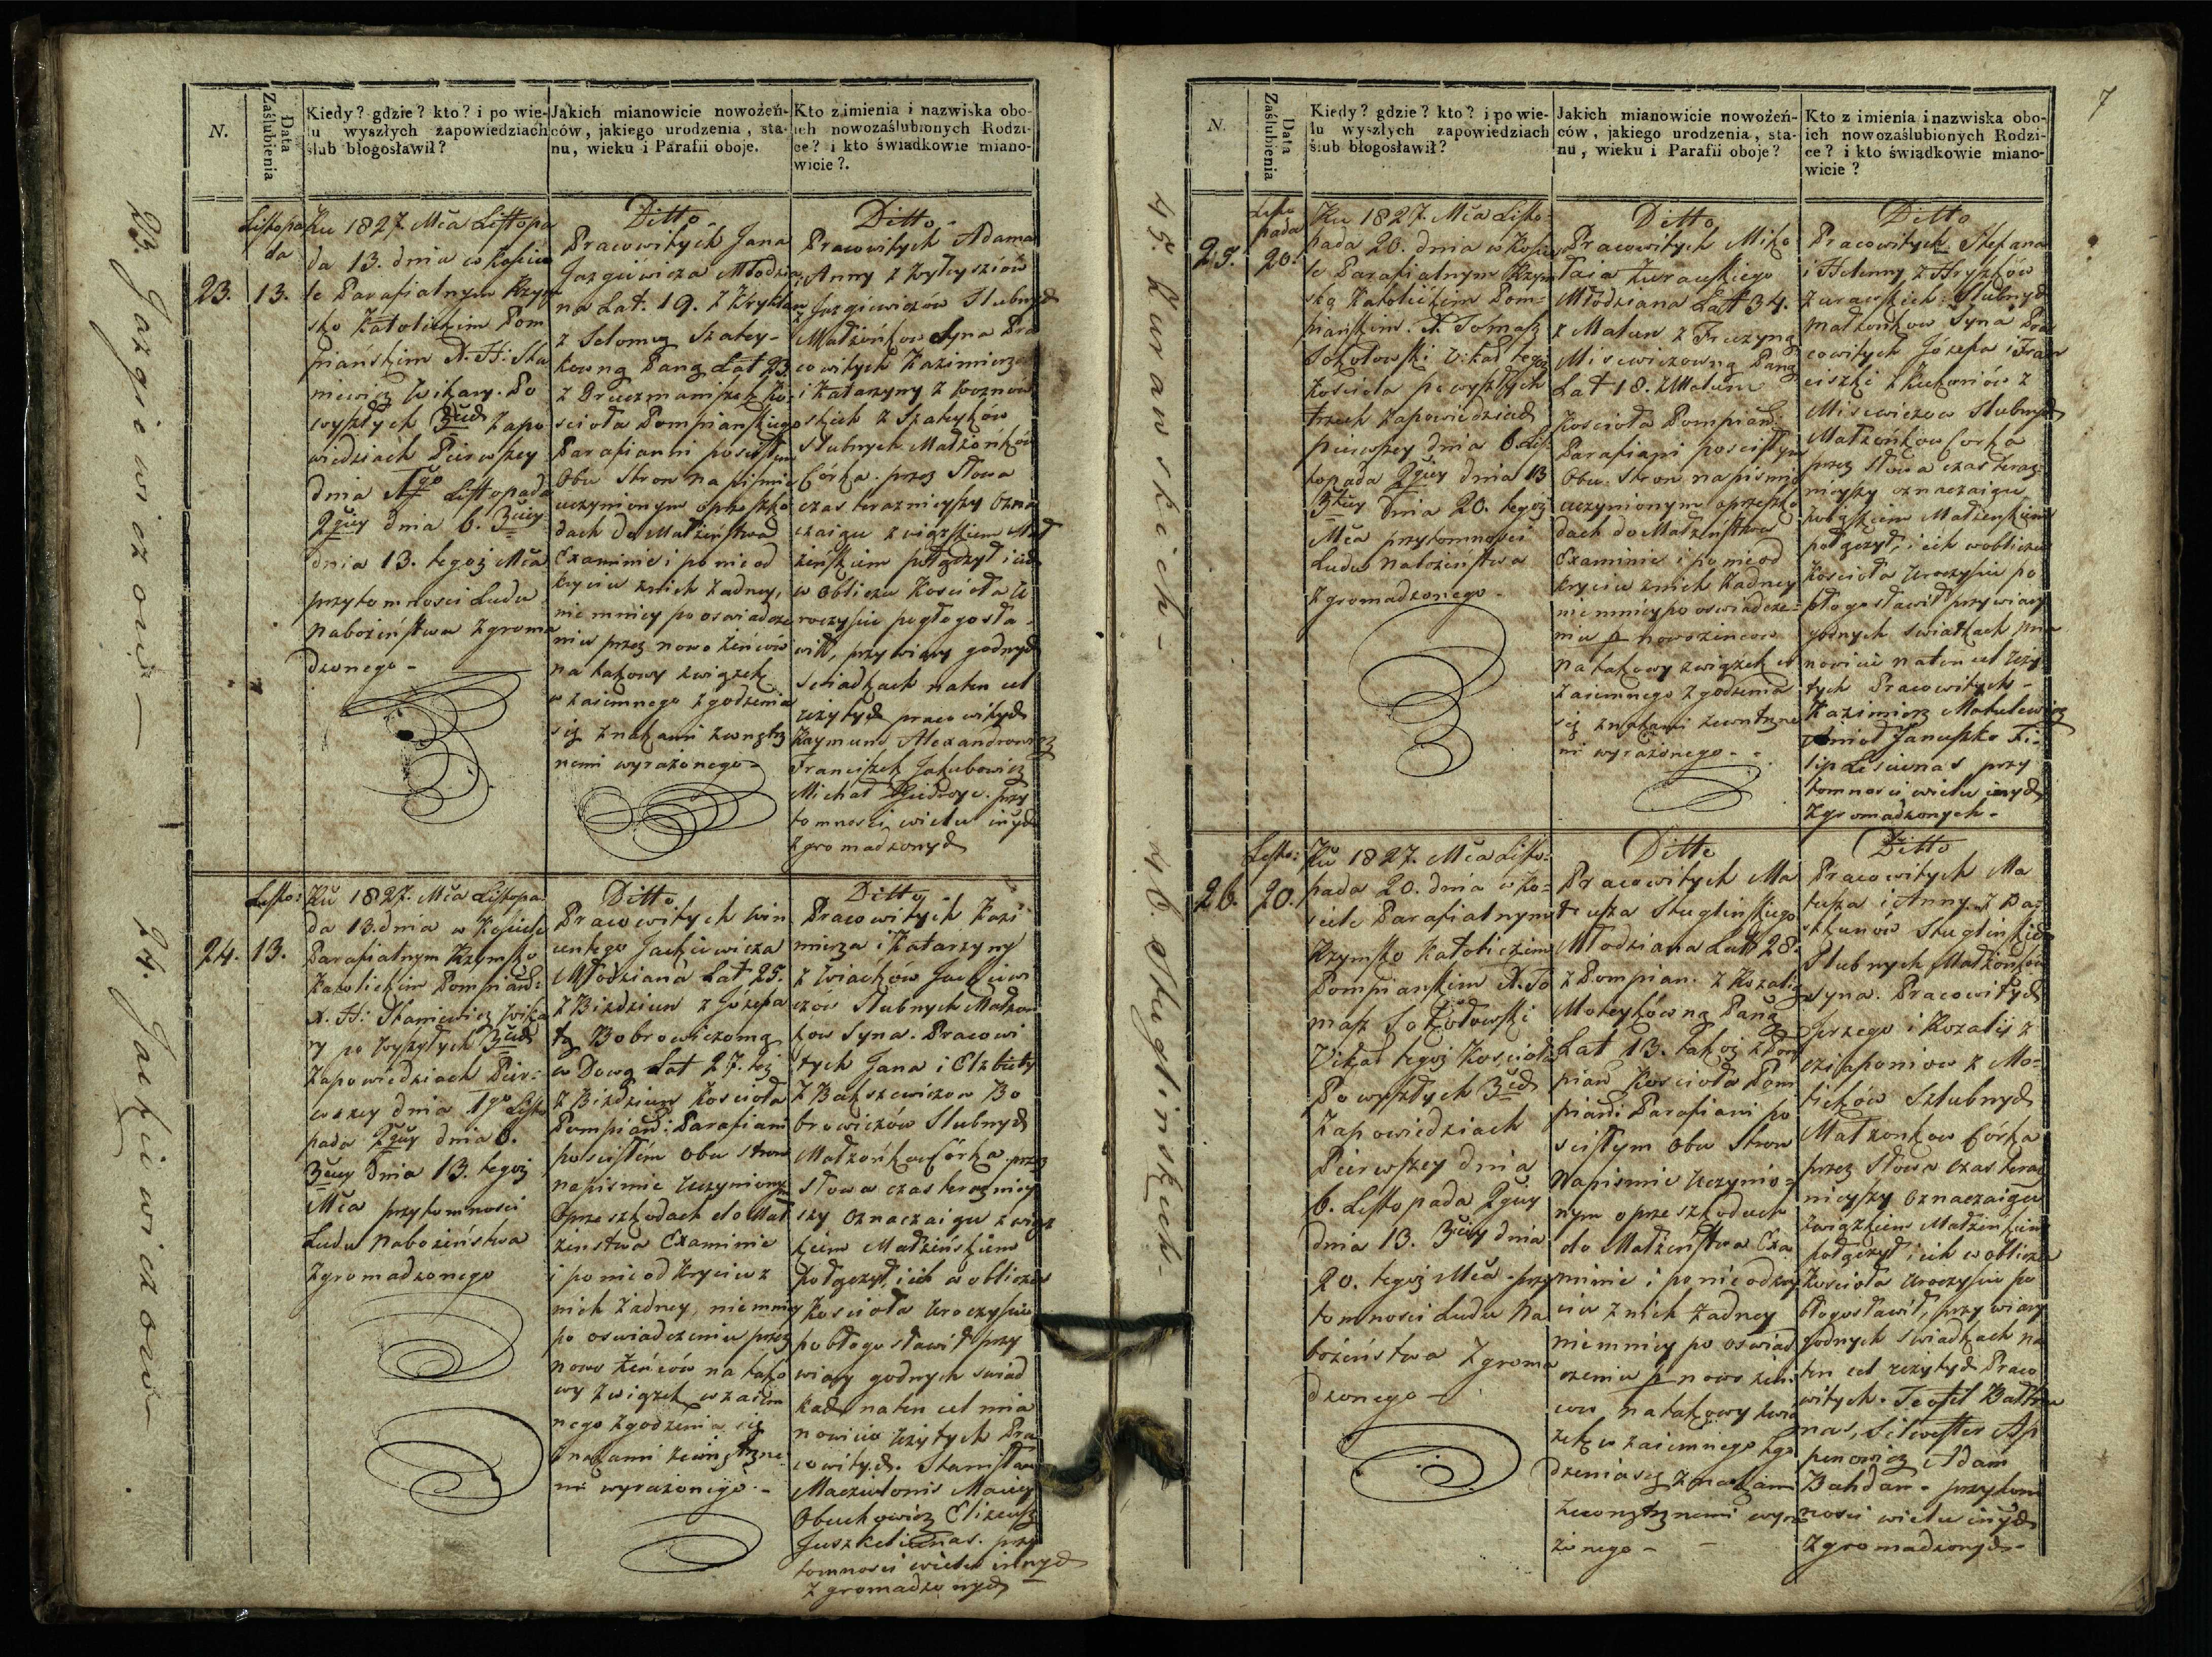 N.
Data
Zaślubienia
Kiedy? gdzie? kto? i po wie-
lu wyszłych zapowiedziach
ślub błogosławił?
Jakich mianowicie nowożeń-
ców, jakiego urodzenia, sta-
nu, wieku i Parafii oboje.
Kto z imienia i nazwiska obo-
ich nowozaślubionych Rodzi-
ce? i kto świadkowie miano-
wicie?.
23. Jazgiewiczow
23.
Listopa
da
13.
Ru 1827. Mca Listopa
da 13. dnia w Koście
le Parafialnym Rzym
sko Katolickim Pom
piańskim X. H: Sta
niewicz Wikary. Po
wyszłych 3ch Zapo
wiedziach Pierwszey
dnia 1go Listopada
2giey dnia 6. 3ciey
dnia 13. tegoż Mca
przytomności Ludu
Nabożeństwa Zgroma
dzonego -
Ditto
Pracowitych Jana
Jazgiewicza Młodzia
na Lat. 19. z
z Salomeą Szatey-
kowną Panną Lat 23
z Ko-
scioła Pompianskiego
Parafianni po scisłym
Obu Stron na pismie
uczynionym o przeszko
dach do Małżeństwa
Examinie i po nie od
kryciu z nich żadney,
nie mniey po oswiadcze
niu przez nowo żeńców
na takowy związek
wzaiemnego zgodzenia
się znakami zewnętrz
nemi wyrażonego -
Ditto
Pracowitych Adama
i Anny z
Jazgiewiczów Slubnych
Małżonków Syna Pra
cowitych Kazimierza
i Katarzyny z
skich z Szateyków
Slubnych Małżonków
Córka. przez słowa
czas teraznieyszy ozna
czaiące związkiem Mał
żeńskiem połączył i ich
w obliczu Kościoła U
roczyscie pogłogosła
wił, przy wiary godnych
Swiadkach na ten cel
użytych pracowitych
Raymund Alexandrowicz
Franciszek Jakubowicz
Michał Giedroyc. przy
tomnosci wielu inych
Zgromadzonych
24. Jackiewiczow
24.
Listo:
13.
Ru 1827. Mca Listopa
da 13. dnia w Kościele
Parafialnym Rzymsko
Katolickim Pompiań:
X. H: Staniewicz Wika
ry po wyszłych 3ch
Zapowiedziach Pier-
wszey dnia 1go Listo
pada 2giey dnia 6.
3ciey dnia 13. tegoż
Mca przytomnosci
Ludu Nabożeństwa
Zgromadzonego
Ditto
Pracowitych Win
centego Jackiewicza
Młodziana Lat 25.
z Bizdziun z Jozepa
tą Bobrowiczowną
w Dową Lat 27. też
z Bizdziun Koscioła
Pompiań: Parafiani
po scisłem obu stron
na pismie uczynionym
o przeszkodach do Mał
żenstwa Examinie
i po nie odkryciu z
nich żadney, nie mniey
po oswiadczeniu przez
nowo żeńców na tako
wy związek wzaiem
nego zgodzenia się
znakami zewnętrzne-
mi wyrażonego -
Ditto
Pracowitych Kazi
mierza i Katarzyny
z Jackiewi
czow Slubnych Małżon
kow Syna. Pracowi
tych Jana i Elzbiety
z Bakszewiczow Bo
browiczów Slubnych
Małżonkow Córka. przez
słowa czas terazniey
szy oznaczaiące związ
kiem Małżeńskiem
połączył, i ich w obliczu
Koscioła uroczyscie
pobłogosławił przy
wiary godnych swiad
kach na ten cel mia
nowicie użytych Pra
cowitych. Stanisław
Maciey
Obuchowicz Elizeusz
przy
tomnosci wielu innych
Zgromadzonych
7
N.
Data
Zaślubienia
Kiedy? gdzie? kto? i po wie-
lu wyszłych zapowiedziach
ślub błogosławił?
Jakich mianowicie nowożeń-
ców, jakiego urodzenia, sta-
nu, wieku i Parafii oboje?
Kto z imienia i nazwiska obo-
ich nowozaślubionych Rodzi-
ce? i kto świadkowie miano-
wicie?
25. Zurawskich -
25.
Listo
pada
20.
Ru 1827. Mca Listo-
pada 20. dnia w Koscie
le Parafialnym Rzym
sko Katolickim Pom-
piańskim. X. Tomasz
Sokołowski Vikar tegoż
Koscioła po wyszłych
trzech zapowiedziach
Pierwszey dnia 6. Lis-
topada 2giey dnia 13
3ciey dnia 20. tegoż
Mca przytomnosci
Ludu Nabożeństwa
Zgromadzonego -
Ditto
Pracowitych Miko
łaia Zurawskiego
Młodziana Lat 34.
z Matun z
Misiewiczowną Panną
Lat 18. z Matun
Koscioła Pompiań:
Parafiani po scisłym
Obu. stron na pismie
uczynionym o przeszko
dach do Małżenstwa
Examinie i po nie od
kryciu z nich żadney
nie mniey po oswiadcze-
niu p nowożencow
na takowy związek w
zaiemnego zgodzenia
się znakami zewnętrzne
mi wyrażonego -
Ditto
Pracowitych Stefana
i Helenny z Hryszków
Zurawskich Slubnych
Małżonkow Syna Pra
cowitych Józefa i Fran
ciszki z z
Misiewiczow Slubnych
Małżonkow Corka
przez słowa czas teraz-
nieyszy oznaczaiące
związkiem Małżenskiem
połączył, i ich w obliczu
Koscioła Uroczyscie po
błogosławił przy wiary
godnych swiadkach mia
nowicie na ten cel Uży-
tych Pracowitych -
Kazimierz Matulewicz
Januszko Fi-
lip przy
tomnosci wielu inych
Zgromadzonych -
26. Stuglinskich -
26.
Listo:
20.
Ru 1827. Mca Listo-
pada 20. dnia w Ko-
sciele Parafialnym
Rzymsko Katolickim
Pompianskim X. To
masz Sokołowski
Vikar tegoż Koscioła
Po wyszłych 3ch
Zapowiedziach
Pierwszey dnia
6. Listopada 2giey
dnia 13. 3ciey dnia
20. tegoż Mca przy
tomnosci Ludu Na
bożeństwa Zgroma
dzonego -
Ditto
Pracowitych Ma
teusza Stuglinskiego
Młodziana Lat 28.
z Pompian. z Rozalią
Moteykówną Panną
Lat 13. takoż z Pom
pian Koscioła Pom
piań: Parafiani po
scisłym Obu Stron
Na pismie uczynio-
nym o przeszkodach
do Małżeństwa Exa
minie i po nie odkry
ciu z nich żadney
nie mniey po oswiad
czeniu p nowożeń
cow na takowy zwią
zek wzaiemnego zgo
dzenia się znakami
zewnętrznemi wyra
żonego -
Ditto
Pracowitych Ma
teusza i Anny z
Stuglinskich
Slubnych Małżonkow
Syna. Pracowitych
Jerzego i Rozalij z
z Mo-
tieków Szlubnych
Małżonkow Córka
przez słowa czas teraz
nieyszy oznaczaiące
związkiem Małżenskiem
połączył, i ich w obliczu
Koscioła Uroczyscie po
błogosławił, przy wiary
godnych swiadkach na
ten cel użytych Praco
witych. Teofil
Silwester
Adam
przytom
nosci wielu inych
Zgromadzonych -